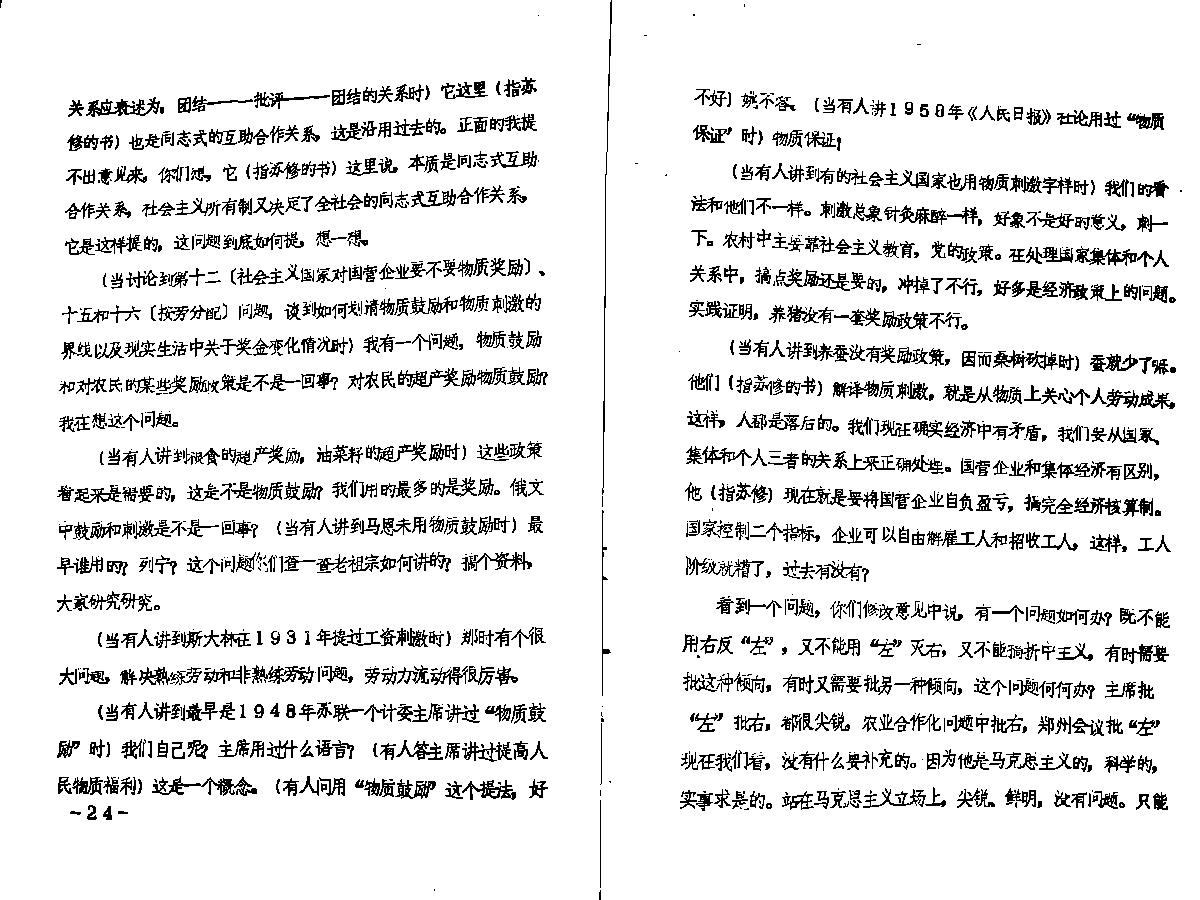 关系应表述为，团结——批评——团结的关系时）它这里（指苏
修的书）也是同志式的互助合作关系，这是沿用过去的。正面的我提
不出意见来，你们想，它（指苏修的书）这里说，本质是同志式互助
合作关系，社会主义所有制又决定了全社会的同志式互助合作关系，
它是这样提的，这问题到底如何提，想一想。
（当讨论到第十二〔社会主义国家对国营企业要不要物质奖励〕、
十五和十六〔按劳分配〕问题，谈到如何划清物质鼓励和物质刺激的
界线以及现实生活中关于奖金变化情况时）我有一个问题，物质鼓励
和对农民的某些奖励政策是不是一回事？对农民的超产奖励物质鼓励？
我在想这个问题。
（当有人讲到粮食的超产奖励，油菜籽的超产奖励时）这些政策
看起来是需要的，这是不是物质鼓励？我们用的最多的是奖励。俄文
中鼓励和刺激是不是一回事？（当有人讲到马恩未用物质鼓励时）最
早谁用的？列宁？这个问题你们查一查老祖宗如何讲的？搞个资料，
大家研究研究。
（当有人讲到斯大林在１９３１年提过工资刺激时）那时有个很
大问题，解决熟练劳动和非熟练劳动问题，劳动力流动得很厉害。
（当有人讲到最早是１９４８年苏联一个计委主席讲过“物质鼓
励”时）我们自己呢？主席用过什么语言？（有人答主席讲过提高人
民物质福利）这是一个概念。（有人问用“物质鼓励”这个提法，好
－24－
不好）姚不答。（当有人讲１９５８年《人民日报》社论用过“物质
保证”时）物质保证！
（当有人讲到有的社会主义国家也用物质刺激字样时）我们的看
法和他们不一样。刺激总象针灸麻醉一样，好象不是好的意义，刺一
下。农村中主要靠社会主义教育，党的政策。在处理国家集体和个人
关系中，搞点奖励还是要的，冲掉了不行，好多是经济政策上的问题。
实践证明，养猪没有一套奖励政策不行。
（当有人讲到养蚕没有奖励政策，因而桑树砍掉时）蚕就少了嘛。
他们（指苏修的书）解译物质刺激，就是从物质上关心个人劳动成果，
这样，人都是落后的。我们现在确实经济中有矛盾，我们要从国家、
集体和个人三者的关系上来正确处理。国营企业和集体经济有区别，
他（指苏修）现在就是要将国营企业自负盈亏，搞完全经济核算制。
国家控制二个指标，企业可以自由解雇工人和招收工人，这样，工人
阶级就糟了，过去有没有？
看到一个问题，你们修改意见中说，有一个问题如何办？既不能
用右反“左”，又不能用“左”灭右，又不能搞折中主义，有时需要
批这种倾向，有时又需要批另一种倾向，这个问题何何办？主席批
“左”批右，都很尖锐。农业合作化问题中批右，郑州会议批“左”
现在我们看，没有什么要补充的。因为他是马克思主义的，科学的，
实事求是的。站在马克思主义立场上，尖锐、鲜明，没有问题。只能